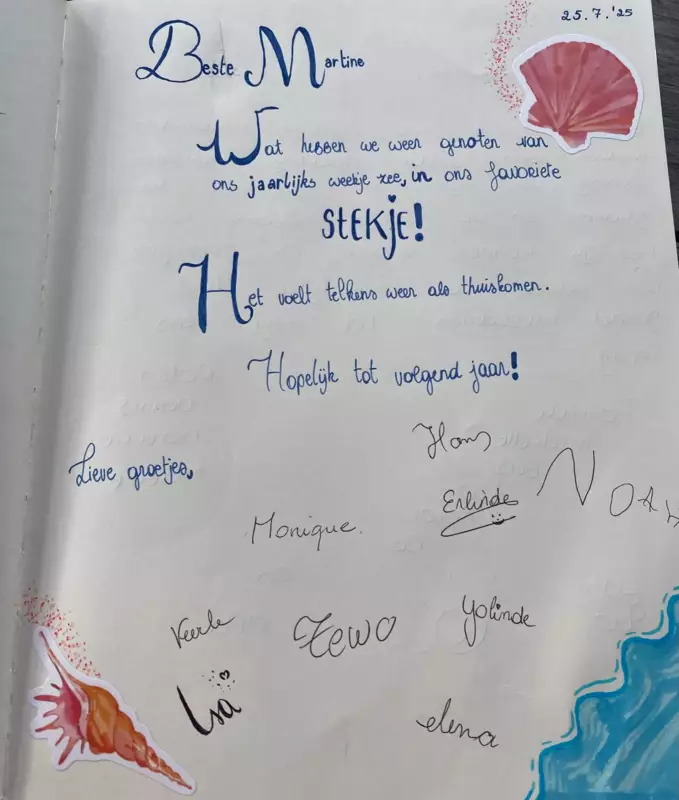 25.7.'25
Beste Martine
Wat hebben we weer genoten van
ons jaarlijks weekje zee, in ons favoriete
STEKJE!
Het voelt telkens weer als thuiskomen.
Hopelijk tot volgend jaar!
Lieve groetjes,
Hans
Monique.
Erlinde
NOAH
Veerle
Zewo
Yolinde
Isa
elena